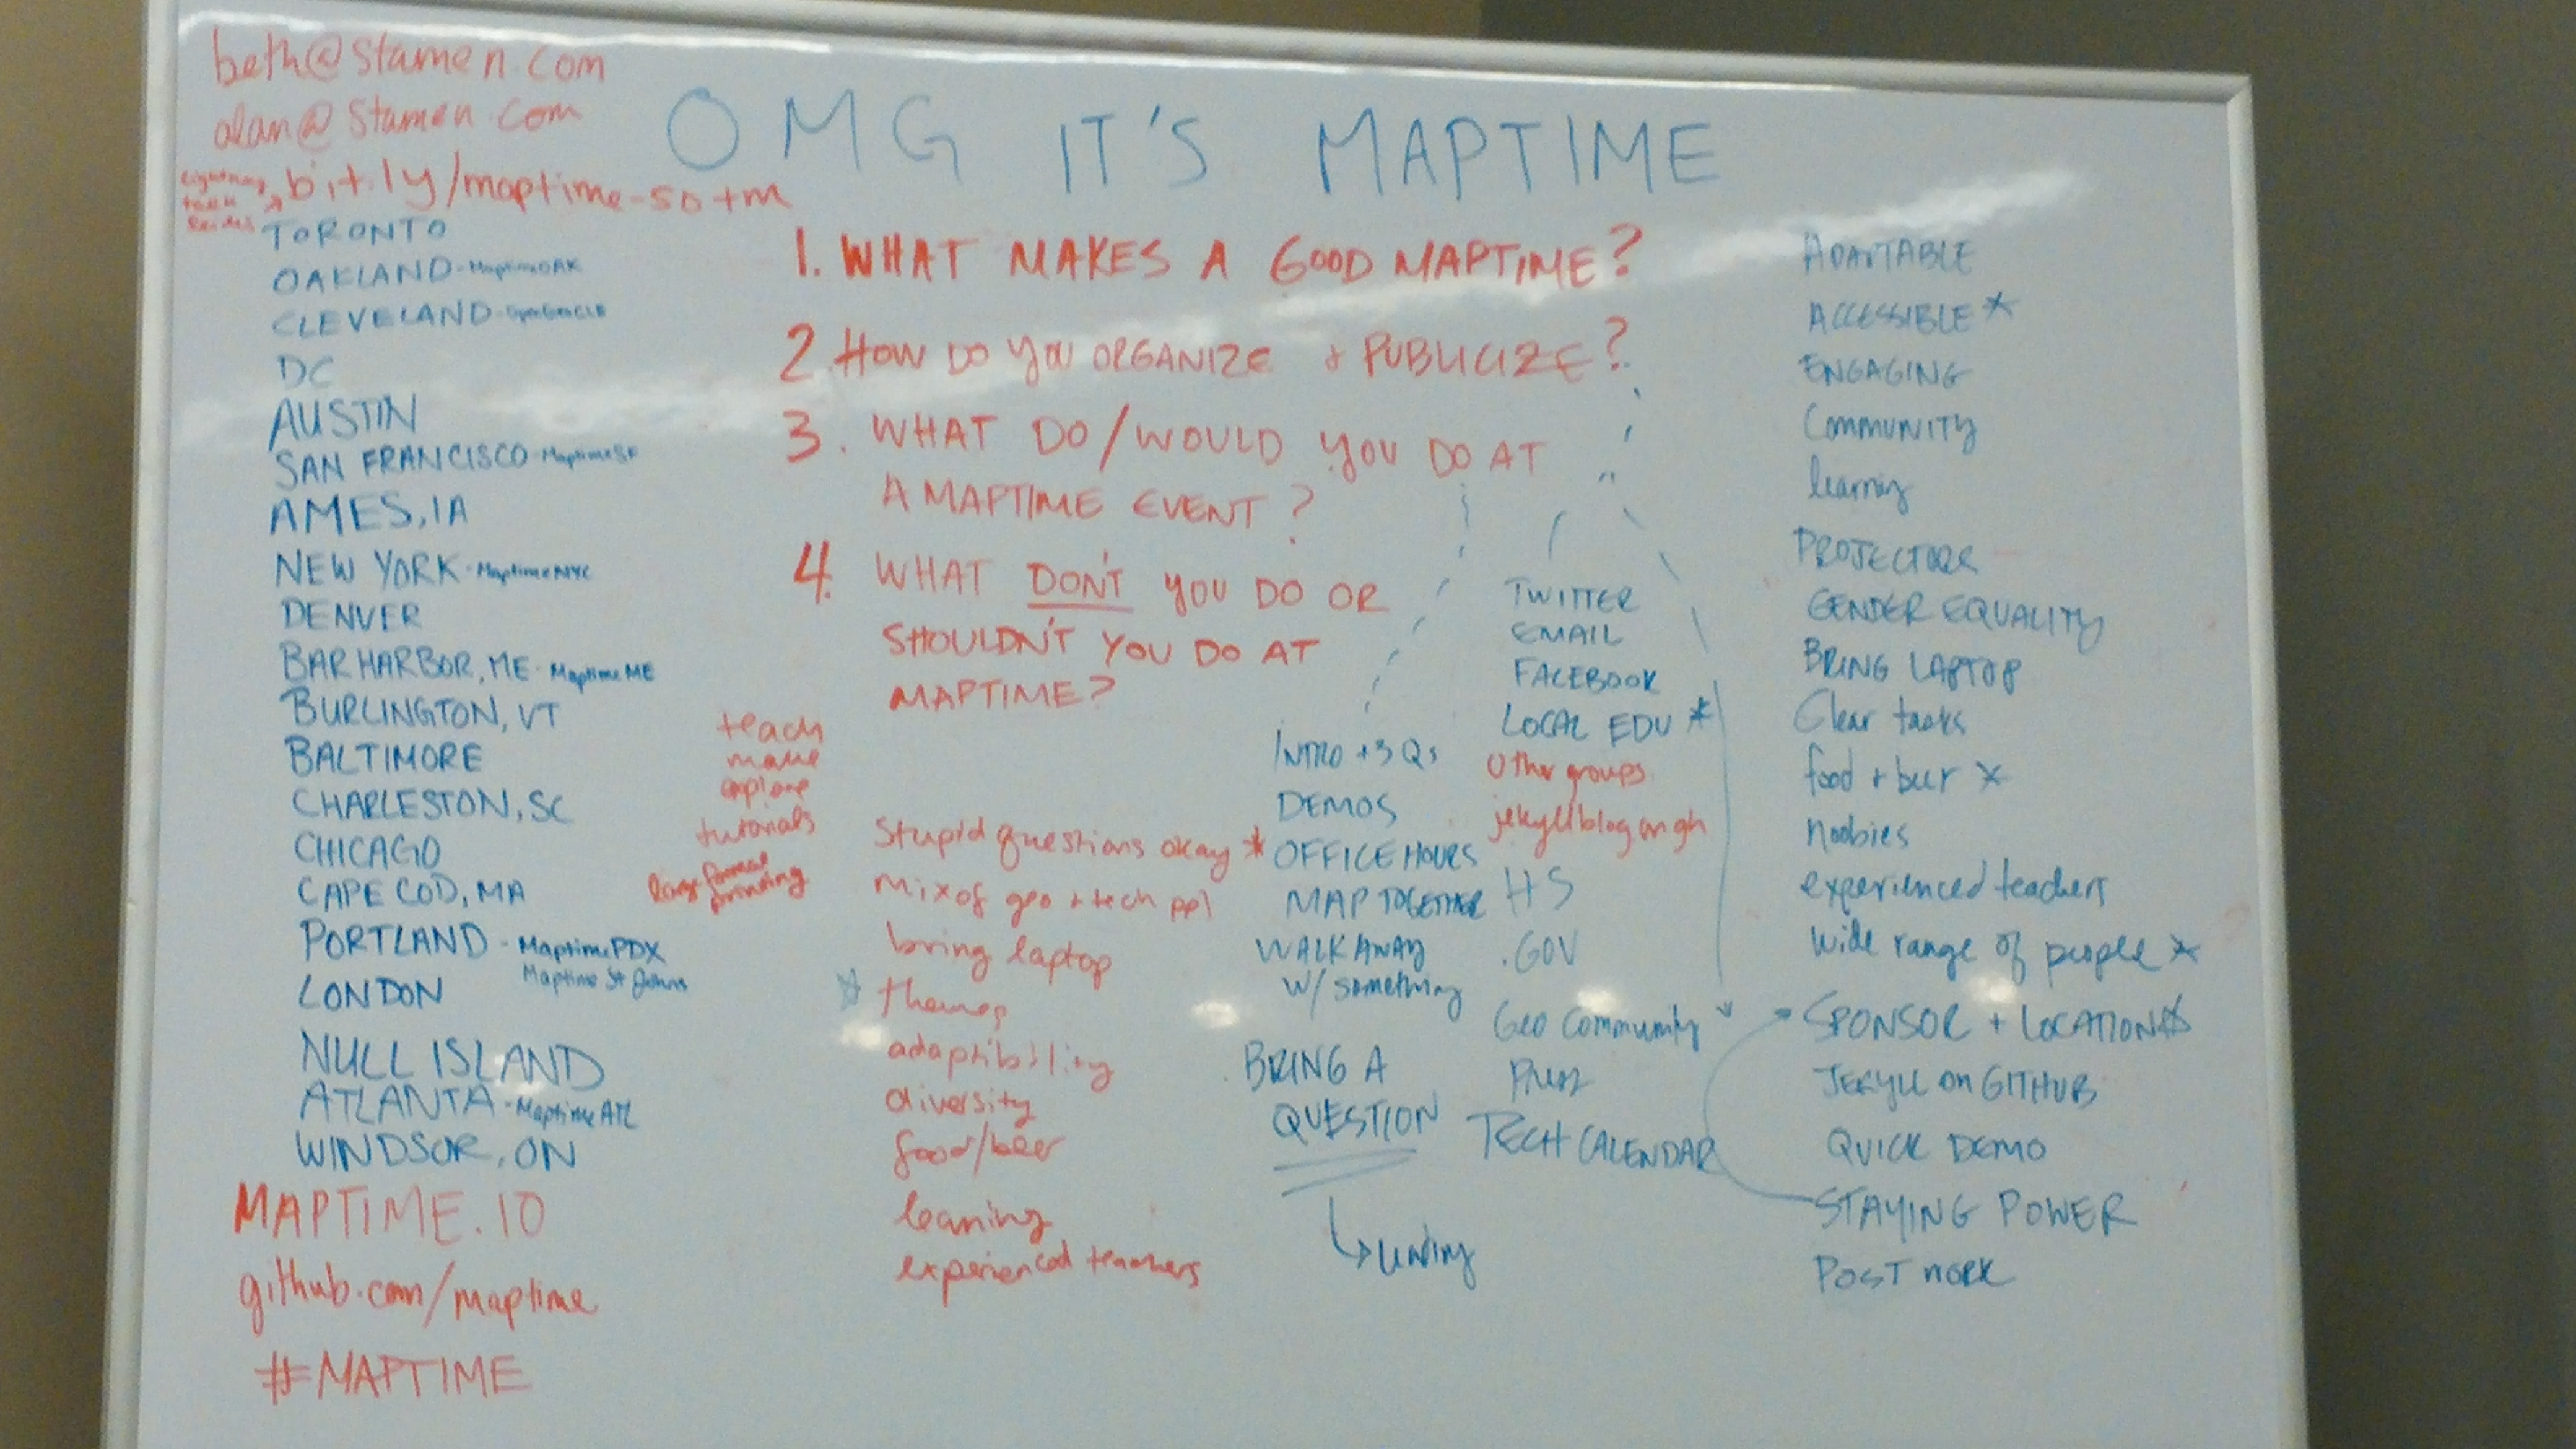 OMG IT'S MAPTIME
beth@stamen.com
alan@stamen.com
lightning
talk
bit.ly/maptime-sotm
TORONTO
OAKLAND - MaptimeOAK
CLEVELAND - OpenGeoCLE
DC
AUSTIN
SAN FRANCISCO - MaptimeSF
AMES, IA
NEW YORK - MaptimeNYC
DENVER
BAR HARBOR, ME - MaptimeME
BURLINGTON, VT
BALTIMORE
CHARLESTON, SC
CHICAGO
CAPE COD, MA
PORTLAND - MaptimePDX
Maptime St Johns
LONDON
NULL ISLAND
ATLANTA - MaptimeATL
WINDSOR, ON
MAPTIME.IO
github.com/maptime
#MAPTIME
1. WHAT MAKES A GOOD MAPTIME?
2. HOW DO YOU ORGANIZE + PUBLICIZE?
3. WHAT DO/WOULD YOU DO AT
A MAPTIME EVENT?
4. WHAT DON'T YOU DO OR
SHOULDN'T YOU DO AT
MAPTIME?
teach
make
explore
tutorials
Large format
printing
Stupid questions okay *
mix of geo + tech ppl
bring laptop
* themes
adaptibility
diversity
food/beer
learning
experienced teachers
INTRO + 3 Qs
DEMOS
OFFICE HOURS
MAP TOGETHER
WALK AWAY
W/ something
BRING A
QUESTION
TWITTER
EMAIL
FACEBOOK
LOCAL EDU *
Other groups
jekyll blog on gh
HS
.GOV
Geo Community
TECH CALENDAR
ADAPTABLE
ACCESSIBLE *
ENGAGING
COMMUNITY
learning
PROJECTORS
GENDER EQUALITY
BRING LAPTOP
Clear tasks
food + beer *
noobies
experienced teachers
wide range of people *
SPONSOR + LOCATION *
JEKYLL on GITHUB
QUICK DEMO
STAYING POWER
POST WORK